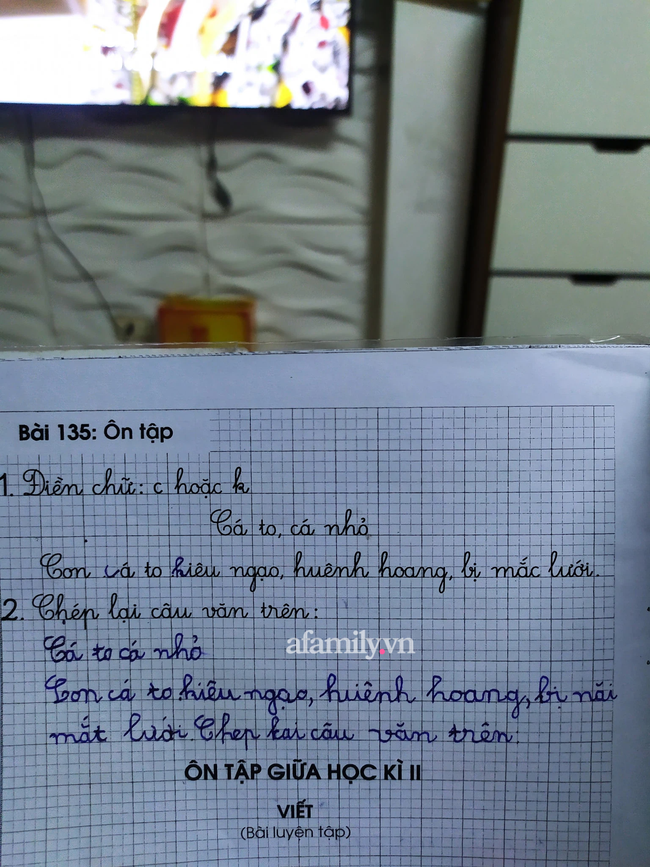 Bài 135: Ôn tập
1. Điền chữ: c hoặc k
Cá to, cá nhỏ
Con cá to kiêu ngạo, huênh hoang, bị mắc lưới.
2. Chép lại câu văn trên:
afamily.vn
Cá to cá nhỏ
Con cá to kiêu ngạo, huiênh hoang, bị nãi
mắt lưới. Chep kai câu văn trên.
ÔN TẬP GIỮA HỌC KÌ II
VIẾT
(Bài luyện tập)